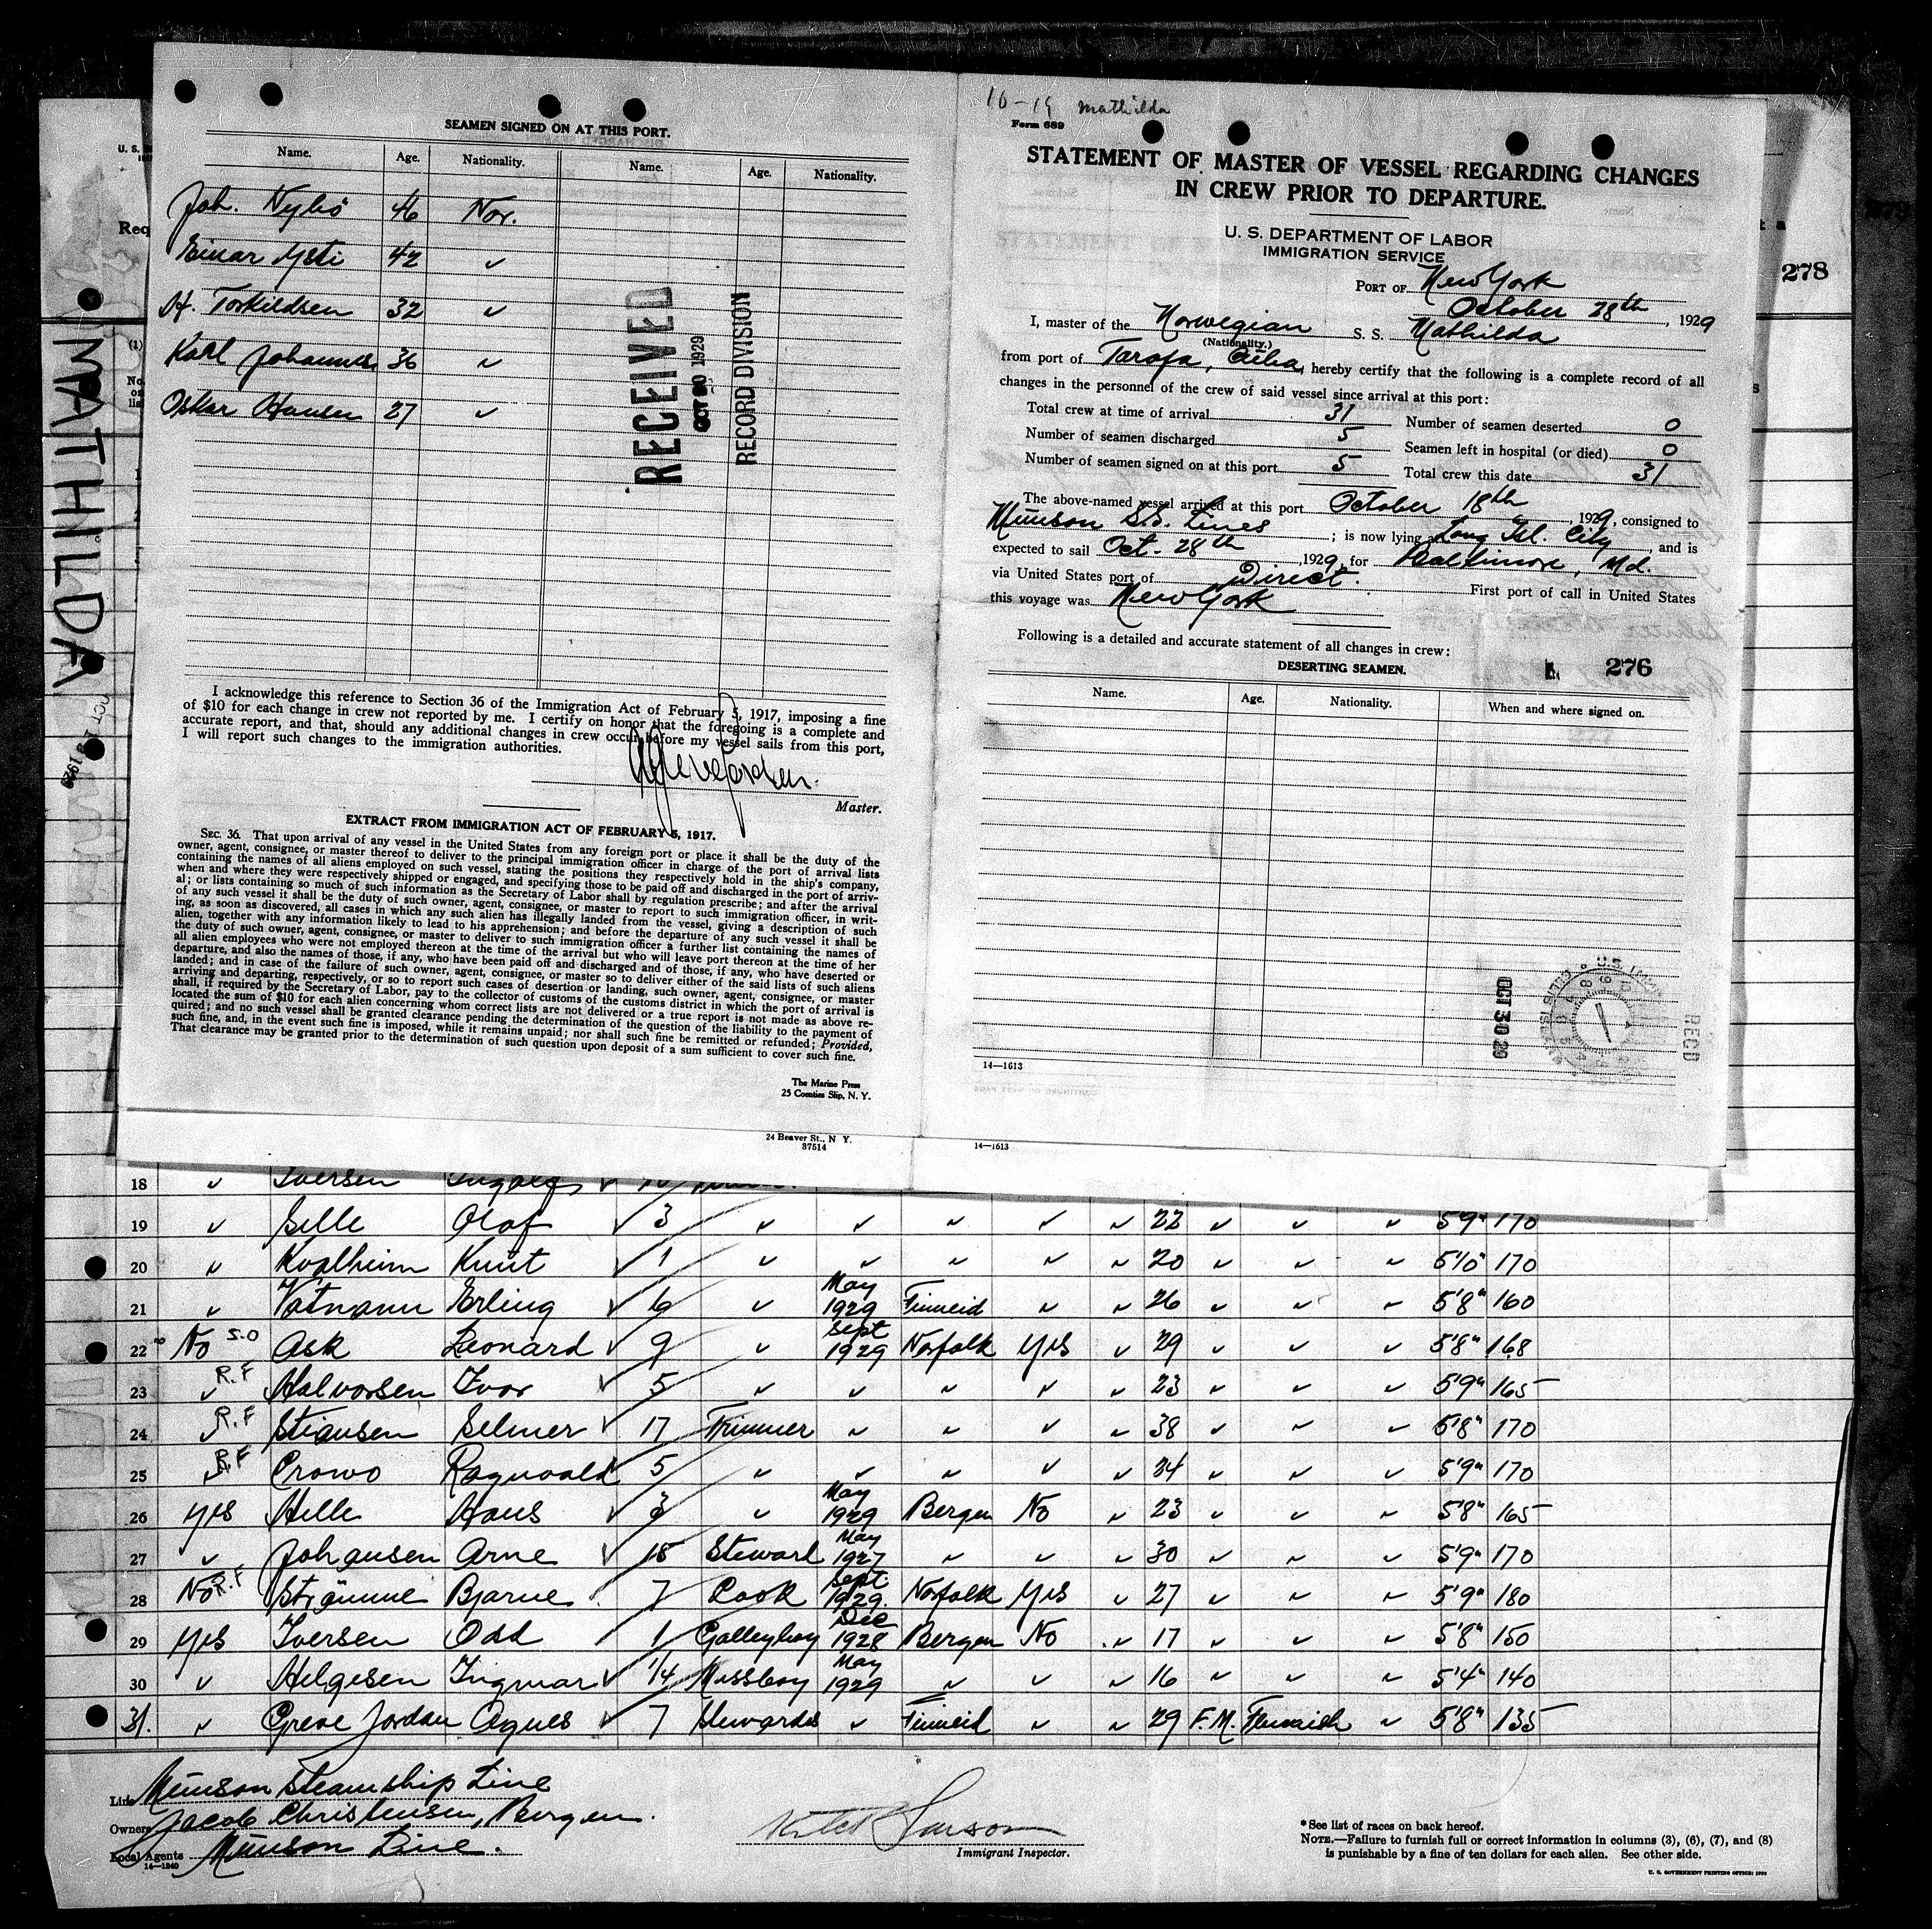 SEAMEN SIGNED ON AT THIS PORT.
Name. Age. Nationality. Name. Age. Nationality.
Joh. Nybö 46 Nor.
Einar Ysti 42 ✓
H. Torkildsen 32 ✓
Karl Johannes 36 ✓
Oskar Hansen 27 ✓
RECEIVED
OCT 30 1929
RECORD DIVISION
I acknowledge this reference to Section 36 of the Immigration Act of February 5, 1917, imposing a fine
of $10 for each change in crew not reported by me. I certify on honor that the foregoing is a complete and
accurate report, and that, should any additional changes in crew occur before my vessel sails from this port,
I will report such changes to the immigration authorities.
Master.
EXTRACT FROM IMMIGRATION ACT OF FEBRUARY 5, 1917.
SEC. 36. That upon arrival of any vessel in the United States from any foreign port or place it shall be the duty of the
owner, agent, consignee, or master thereof to deliver to the principal immigration officer in charge of the port of arrival lists
containing the names of all aliens employed on such vessel, stating the positions they respectively hold in the ship's company,
when and where they were respectively shipped or engaged, and specifying those to be paid off and discharged in the port of arriv-
al; or lists containing so much of such information as the Secretary of Labor shall by regulation prescribe; and after the arrival
of any such vessel it shall be the duty of such owner, agent, consignee, or master to report to such immigration officer, in writ-
ing, as soon as discovered, all cases in which any such alien has illegally landed from the vessel, giving a description of such
alien, together with any information likely to lead to his apprehension; and before the departure of any such vessel it shall be
the duty of such owner, agent, consignee, or master to deliver to such immigration officer a further list containing the names of
all alien employees who were not employed thereon at the time of the arrival but who will leave port thereon at the time of her
departure, and also the names of those, if any, who have been paid off and discharged and of those, if any, who have deserted or
landed; and in case of the failure of such owner, agent, consignee, or master so to deliver either of the said lists of such aliens
arriving and departing, respectively, or so to report such cases of desertion or landing, such owner, agent, consignee, or master
shall, if required by the Secretary of Labor, pay to the collector of customs of the customs district in which the port of arrival is
located the sum of $10 for each alien concerning whom correct lists are not delivered or a true report is not made as above re-
quired; and no such vessel shall be granted clearance pending the determination of the question of the liability to the payment of
such fine, and, in the event such fine is imposed, while it remains unpaid; nor shall such fine be remitted or refunded; Provided,
That clearance may be granted prior to the determination of such question upon deposit of a sum sufficient to cover such fine.
The Marine Press
25 Coenties Slip, N. Y.
24 Beaver St., N Y.
37514
16-19 Mathilda
Form 689
STATEMENT OF MASTER OF VESSEL REGARDING CHANGES
IN CREW PRIOR TO DEPARTURE.
U. S. DEPARTMENT OF LABOR
IMMIGRATION SERVICE
PORT OF New York
October 28th, 1929
I, master of the Norwegian S. S. Mathilda
(Nationality.)
from port of Tarafa, Cuba, hereby certify that the following is a complete record of all
changes in the personnel of the crew of said vessel since arrival at this port:
Total crew at time of arrival 31 Number of seamen deserted 0
Number of seamen discharged 5 Seamen left in hospital (or died) 0
Number of seamen signed on at this port 5 Total crew this date 31
The above-named vessel arrived at this port October 18th, 1929, consigned to
Munson S.S. Lines; is now lying Long Isl. City, and is
expected to sail Oct. 28th, 1929, for Baltimore, Md.
via United States port of Direct. First port of call in United States
this voyage was New York
Following is a detailed and accurate statement of all changes in crew:
DESERTING SEAMEN.
276
Name. Age. Nationality. When and where signed on.
OCT 30 29
RECD
14—1613
14—1613
278
U. S.
Req
(1)
MATHILDA
OCT 19 1929
18 ✓ Iversen
19 ✓ Selle Olaf ✓ 3 ✓ ✓ ✓ ✓ ✓ 22 ✓ ✓ ✓ 5'9" 170
20 ✓ Kvalheim Knut ✓ 1 ✓ ✓ ✓ ✓ ✓ 20 ✓ ✓ ✓ 5'10 170
21 ✓ Vatnann Erling ✓ 6 ✓ May 1929 Finneid ✓ ✓ 26 ✓ ✓ ✓ 5'8" 160
22 No S.O Ask Leonard ✓ 9 ✓ Sept 1929 Norfolk Yes ✓ 29 ✓ ✓ ✓ 5'8" 168
23 ✓ R.F Halvorsen Ivor ✓ 5 ✓ ✓ ✓ ✓ ✓ 23 ✓ ✓ ✓ 5'9" 165
24 ✓ R.F Stiansen Selmer ✓ 17 Trimmer ✓ ✓ ✓ ✓ 38 ✓ ✓ ✓ 5'8" 170
25 ✓ R.F Crowo Ragnvald 5 ✓ ✓ ✓ ✓ ✓ 34 ✓ ✓ ✓ 5'9" 170
26 Yes Helle Hans ✓ 3 ✓ May 1929 Bergen No ✓ 23 ✓ ✓ ✓ 5'8" 165
27 ✓ Johansen Arne ✓ 15 Steward May 1927 ✓ ✓ ✓ 30 ✓ ✓ ✓ 5'9" 170
28 No R.F Strömme Bjarne 7 Cook Sept. 1929. Norfolk Yes ✓ 27 ✓ ✓ ✓ 5'9" 180
29 Yes Iversen Odd 1 Galleyboy Dec 1928 Bergen No ✓ 17 ✓ ✓ ✓ 5'8" 150
30 ✓ Helgesen Ingmar ✓ 1/4 Messboy May 1929 ✓ ✓ ✓ 16 ✓ ✓ ✓ 5'4" 140
31. ✓ Greve Jordan Agnes ✓ 7 Stewardes ✓ Finneid ✓ ✓ 29 F.M. ✓ 5'8" 135
Line Munson Steamship Line
Owners Jacob Christensen, Bergen.
Local Agents Munson Line.
14—1240
Immigrant Inspector.
* See list of races on back hereof.
NOTE.—Failure to furnish full or correct information in columns (3), (6), (7), and (8)
is punishable by a fine of ten dollars for each alien. See other side.
U. S. GOVERNMENT PRINTING OFFICE: